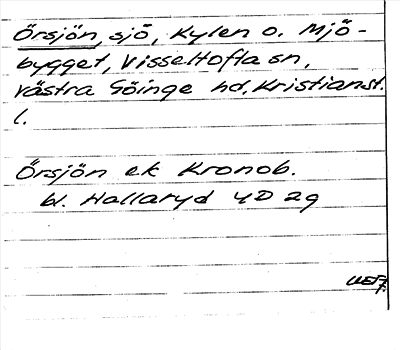 Örsjön, sjö, Kylen o. Mjö-
bygget, Visseltofta sn,
västra Göinge hd, Kristianst.
l.
Örsjön ek Kronob.
bl. Hallaryd 4D 2g